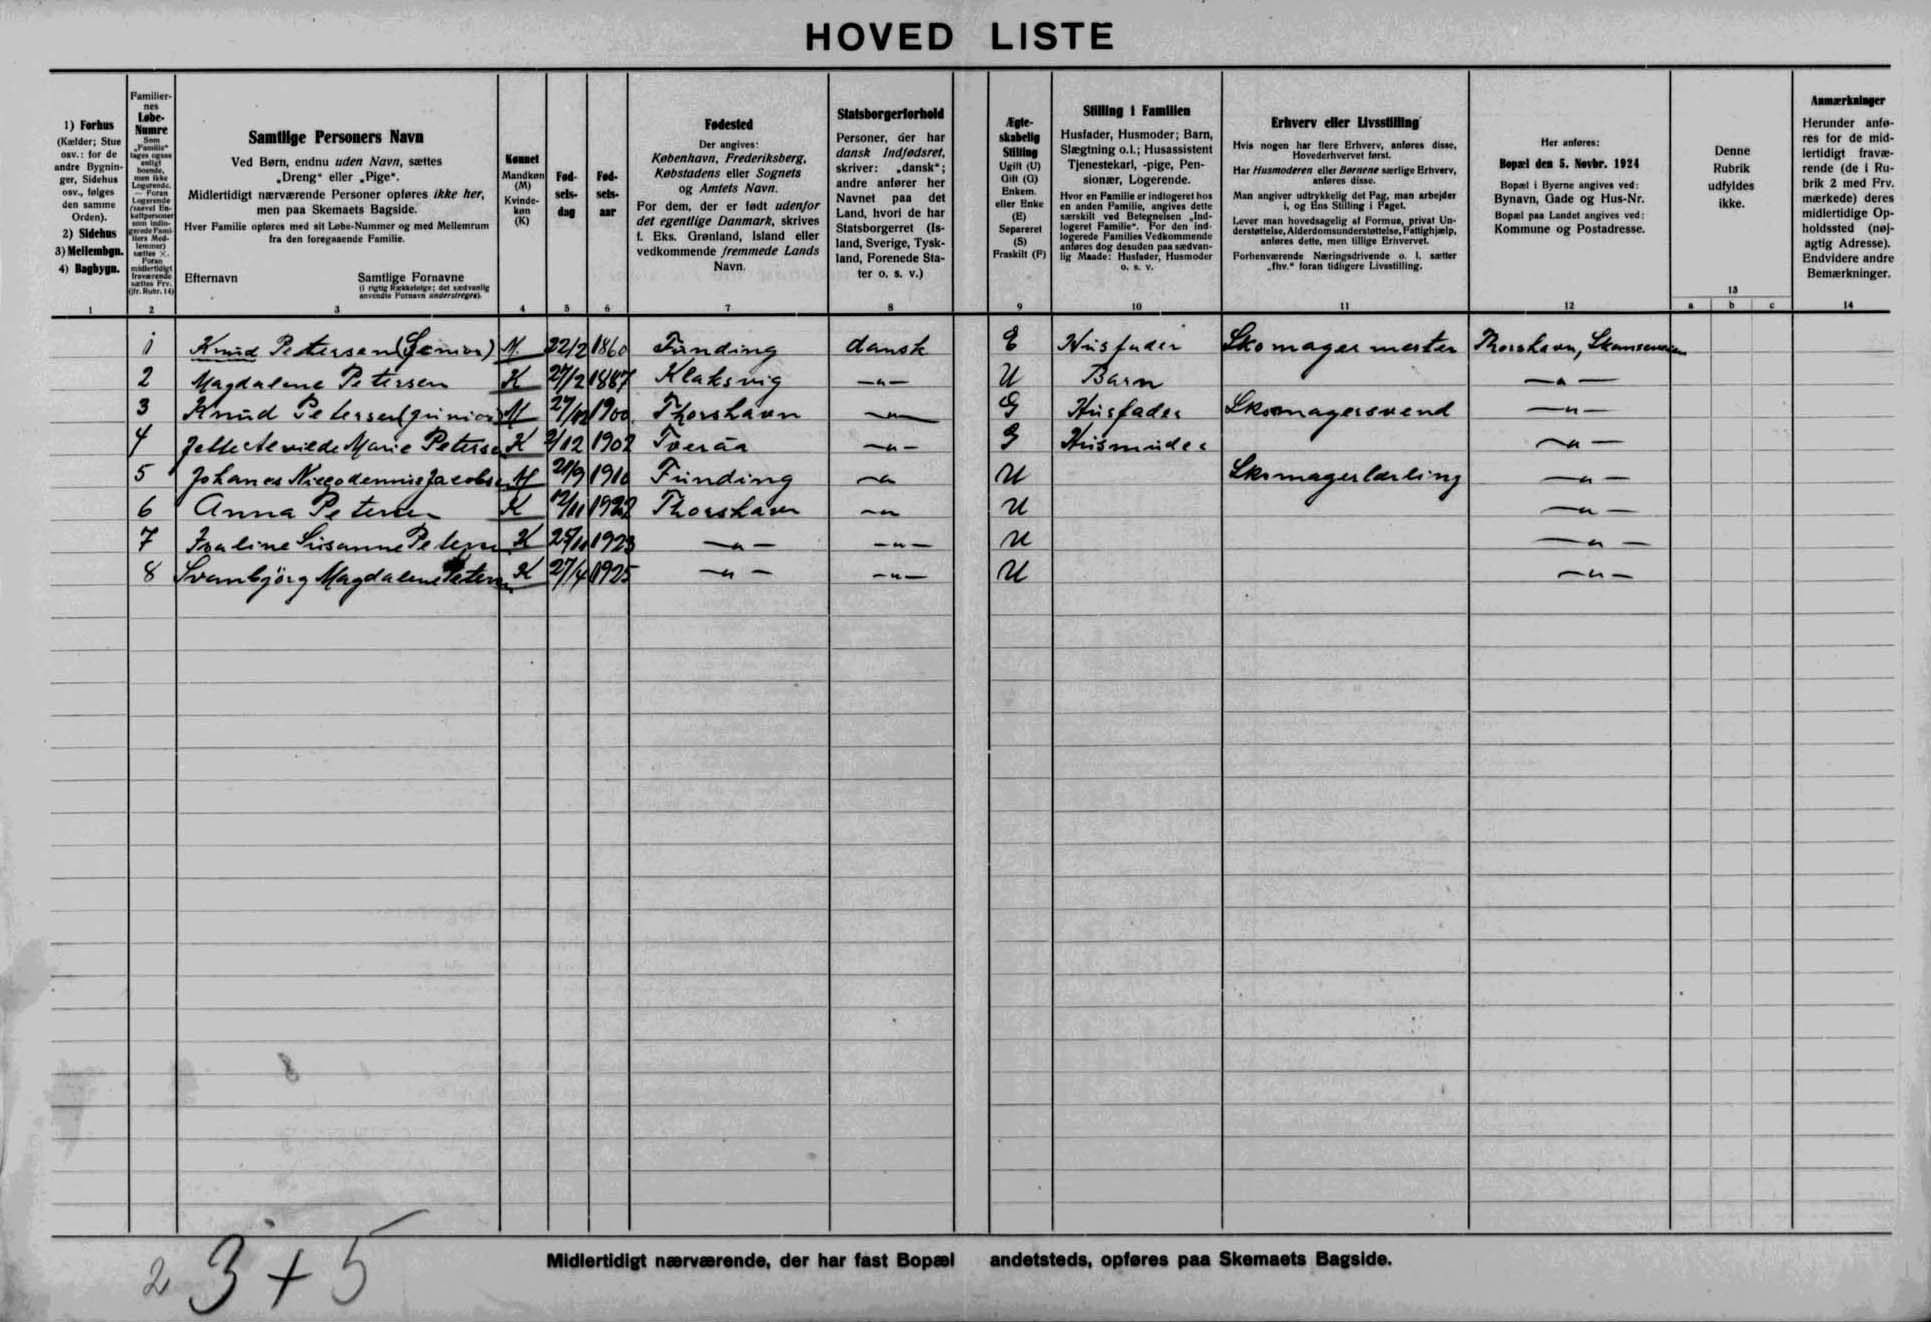 HOVED LISTE
1) Forhus
(Kælder; Stue
osv.: for de
andre Bygnin-
ger, Sidehus
osv., følges
den samme
Orden).
2) Sidehus
3) Mellembgn.
4) Bagbygn.
1
Familier-
nes
Løbe-
Numre
Som
„Familie“
tages ogsaa
enligt
boende,
men ikke
Logerende.
2
Samtlige Personers Navn
Ved Børn, endnu uden Navn, sættes
„Dreng“ eller „Pige“.
Midlertidigt nærværende Personer opføres ikke her,
men paa Skemaets Bagside.
Hver Familie opføres med sit Løbe-Nummer og med Mellemrum
fra den foregaaende Familie.
Efternavn Samtlige Fornavne
(i rigtig Rækkefølge; det sædvanlig
anvendte Fornavn understreges).
3
Kønnet
Mandkøn
(M)
Kvinde-
køn
(K)
4
Fød-
sels-
dag
5
Fød-
sels-
aar
6
Fødested
Der angives:
København, Frederiksberg,
Købstadens eller Sognets
og Amtets Navn.
For dem, der er født udenfor
det egentlige Danmark, skrives
f. Eks. Grønland, Island eller
vedkommende fremmede Lands
Navn.
7
Statsborgerforhold
Personer, der har
dansk Indfødsret,
skriver: „dansk“;
andre anfører her
Navnet paa det
Land, hvori de har
Statsborgerret (Is-
land, Sverige, Tysk-
land, Forenede Sta-
ter o. s. v.)
8
Ægte-
skabelig
Stilling
Ugift (U)
Gift (G)
Enkem.
eller Enke
(E)
Separeret
(S)
Fraskilt (F)
9
Stilling i Familien
Husfader, Husmoder; Barn,
Slægtning o.l.; Husassistent
Tjenestekarl, -pige, Pen-
sionær, Logerende.
Hvor en Familie er indlogeret hos
en anden Familie, angives dette
særskilt ved Betegnelsen „Ind-
logeret Familie“. For den ind-
logerede Families Vedkommende
anføres dog desuden paa sædvan-
lig Maade: Husfader, Husmoder
o. s. v.
10
Erhverv eller Livsstilling
Hvis nogen har flere Erhverv, anføres disse,
Hovederhvervet først.
Har Husmoderen eller Børnene særlige Erhverv,
anføres disse.
Man angiver udtrykkelig det Fag, man arbejder
i, og Ens Stilling i Faget.
Lever man hovedsagelig af Formue, privat Un-
derstøttelse, Alderdomsunderstøttelse, Fattighjælp,
anføres dette, men tillige Erhvervet.
Forhenværende Næringsdrivende o. l. sætter
„fhv.“ foran tidligere Livsstilling.
11
Her anføres:
Bopæl den 5. Novbr. 1924
Bopæl i Byerne angives ved:
Bynavn, Gade og Hus-Nr.
Bopæl paa Landet angives ved:
Kommune og Postadresse.
12
Denne
Rubrik
udfyldes
ikke.
13
a b c
Anmærkninger
Herunder anfø-
res for de mid-
lertidigt fravæ-
rende (de i Ru-
brik 2 med Frv.
mærkede) deres
midlertidige Op-
holdssted (nøj-
agtig Adresse).
Endvidere andre
Bemærkninger.
14
1 Knud Petersen (Senior) M. 22/2 1860 Funding dansk E Husfader Skomagermester Thorshavn,
2 Magdalene Petersen K 1887 Klaksvig —〃— U Barn —〃—
3 Knud Petersen (junior) M 1900 Thorshavn —〃— G Husfader Skomagersvend —〃—
4 Marie Petersen K 1902 Tveraa —〃— G Husmoder —〃—
5 Johanes Jacobsen M 1910 Funding —〃— U Skomagerlærling —〃—
6 Anna Petersen K 1922 Thorshavn —〃— U —〃—
7 Susanne Petersen K 25/11 1923 —〃— —〃— U —〃—
8 Svanbjörg Magdalene Petersen K 27/4 1925 —〃— —〃— U —〃—
Midlertidigt nærværende, der har fast Bopæl andetsteds, opføres paa Skemaets Bagside.
2 3 + 5